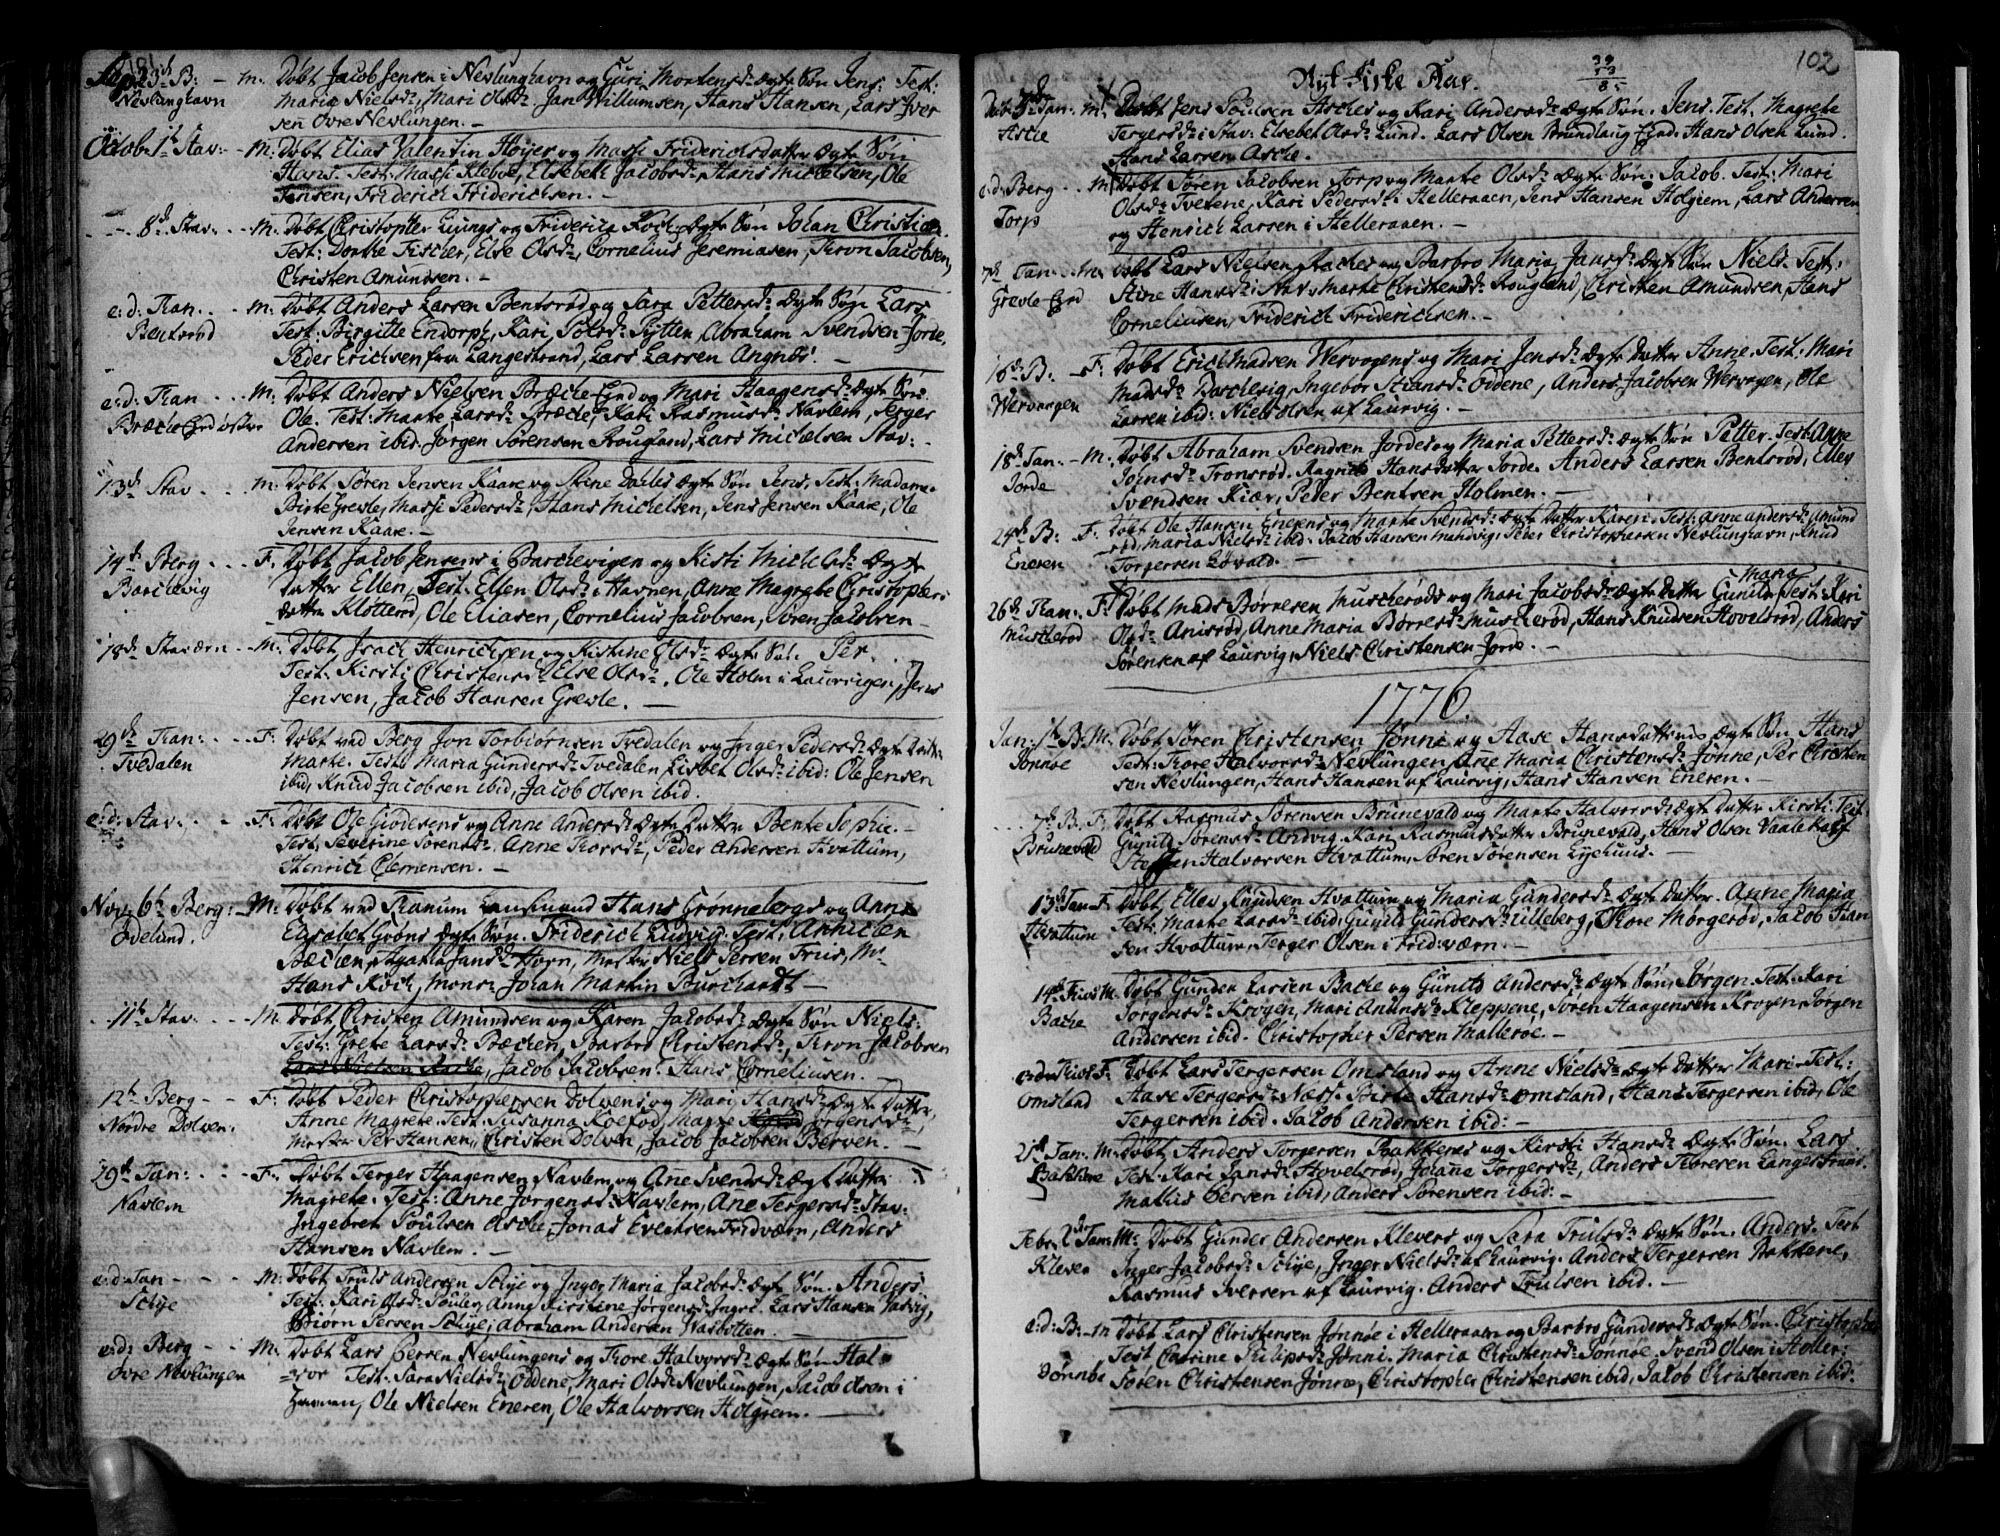 101
Sept. 23d B: - M: Døbt Jacob Jensen i Nevlunghavn og Guri Mortensd: ægte Søn Jens. Test:
Nevlunghavn Maria Nielsd:, Mari Olsd: Jan Willumsen, Hans Hansen, Lars Iver
sen Øvre Nevlungen. -
Octob: 1t Stav: - M: Døbt Elias Valentin Høyer og Massi Friderichsdatter ægte Søn
Hans. Test: Massi Kleboe, Elsebeth Jacobsd:, Hans Michelsen, Ole
Jensen, Friderich Friderichsen. -
8d Stav: - M: Døbt Christopher og Friderica Koch ægte Søn Johan Christian.
Test: Dorthe Fischer, Else Olsd:, Cornelius Jeremiasen, Tron Jacobsen,
Christen Amundsen. -
e:d: Tan: - M: Døbt Anders Larsen Bentsrød og Sara Pettersd: ægte Søn Lars
Bentsrød Test: Birgitte Endorph, Kari Polsd: Rytter, Abraham Svendsen Jorde,
Peder Erichsen fra Langestrand, Lars Larsen Angnes. -
e:d: Tan - M: Døbt Anders Nielsen Bræche Eyed og Mari Haagensd: ægte Søn
Bræche Eyed østre Ole. Test: Marte Larsd: Bræche, Kari Rasmusd: Navlem, Terger
Andersen ibid. Jørgen Sørensen Rougland, Lars Michelsen Stav: -
13d Stav - M: Døbt Søren Jensen Kaare og Stine ægte Søn Jens. Test. Madame
Birte Grevle, Massi Pedersd:, Hans Michelsen, Jens Jensen Kaare, Ole
Jensen Kaare. -
14d Berg - F: Døbt Jacob Jensens i Barchevigen og Kisti Michelsd: ægte
Barchevig datter Ellen. Test. Ellen Olsd: i Havnen, Anne Magrete Christophers
datter Klotterød, Ole Eliasen, Cornelius Jacobsen, Søren Jacobsen -
18d Staværn - M: Døbt Isach Henrichsen og Kistine Olsd: ægte Søn Per.
Test. Kirsti Christensd: Else Olsd:. Ole Holm i Laurvigen, Jens
Jensen, Jacob Hansen Grevle. -
29d Tan: - F: Døbt ved Berg Jon Torbiørnsen Tvedalen og Inger Pedersd: ægte Datter
Tvedalen Marte. Test: Maria Gundersd: Tvedalen Lisbet Olsd: ibid: Ole Jensen
ibid, Knud Jacobsen ibid, Jacob Olsen ibid.
e:d: Stav: - F: Døbt Ole Gudesens og Anne Andersd: ægte Datter Bente Sophie. -
Test. Severine Sørensd: Anne Torsd:, Peder Andersen Hvattum,
Henrich Clemensen. -
Nov: 6t Berg: - M: Døbt ved Tranum Hans Grønnebergs og Anne
Ødelund. Elisabet Grøns ægte Søn. Friderich Ludvig. Test. Annichen
Bæchen, Agata Jansd: Horn, Mester Niels Persen Friis, Mr
Hans Koch, Monsr Johan Martin Burchardt -
11t Stav: - M: Døbt Christen Amundsen og Karen Jacobsd: ægte Søn Niels.
Test: Grete Larsd: Bæchen, Barbro Christensd:, Tron Jacobsen
Lars Nielsen Aache, Jacob Jacobsen. Hans Corneliusen.
12t Berg - F: Døbt Peder Christophersen Dolvens og Mari Hansd: ægte Datter,
Nordre Dolven: Anne Magrete. Test. Susanna Koefod, Marte Jørgensd:,
Mester Per Hansen, Christen Dolven, Jacob Jacobsen Berven. -
29d Tan: - F: Døbt Terger Haagensen Navlem og Ane Svendsd: ægt Datter
Navlem Magrete. Test: Anne Jørgensd: Navlem, Ane Tergersd: Stav:
Ingebret Poulsen Asche, Jonas Evensen Fredværn, Anders
Hansen Navlem. -
e:d: Tan - M: Døbt Truls Andersen Schye og Inger Maria Jacobsd: ægte Søn. Anders.
Schye Test: Kari Olsd: Anne Kirstine Jørgensd: Lars Hansen
Biørn Persen Schye, Abraham Andersen Nasbotten. -
e:d: Berg - M: Døbt Lars Persen Nevlungens og Tore Halvorsd: ægte Søn Hal
Øvre Nevlungen vor Test: Sara Nielsd: Oddene, Mari Olsd: Nevlungen, Jacob Olsen i
Ole Nielsen Eneren, Ole Halvorsen Holgiem. -
102
Nyt Kirke Aar.
39
53
8
Dec: 3d Tan: M: Døbt Jens Poulsen Asches og Kari Andersd: ægte Søn. Jens. Test. Magrete
Asche Tergersd: i Stav: Elsebet Olsd: Lund. Lars Olsen Brundlaug Eyed. Hans Olsen Lund.
Hans Larsen Asche.
e:d: Berg - M: Døbt Søren Jacobsen Torp og Marte Olsd: ægte Søn. Jacob. Test: Mari
Torp Olsd: Tvetene, Kari Pedersd: Helleraaen, Jens Hansen Holgiem, Lars Andersen
og Henrich Larsen i Helleraaen. -
7d Tan: - M: Døbt Lars Nielsen Aaches og Barbro Maria Jansd: ægte Søn Niels. Test:
Grevle Eyed Stine Hansd: i Stav: Marte Christensd: Rougland, Christen Amundsen, Hans
Corneliusen, Friderich Friderichsen. -
16d B: - F: Døbt Erich Madsen Wervagens og Mari Jensd: ægte datter Anne. Test: Mari
Wervagen Madsd: Barchevig, Ingebor Stiansd: Oddene, Anders Jacobsen Wervagen, Ole
Larsen ibid: Niels Olsen af Laurvig. -
18d Tan: - M: Døbt Abraham Svendsen Jordes og Maria Pettersd: ægte Søn Petter. Test: Anne
Jorde Johnsd: Tronsrød. Ragnild Hansdatter Jorde. Anders Larsen Bentsrød, Ellev
Svendsen Kiær, Peder Bentsen Holmen. -
24d B: F: Døbt Ole Hansen Enerens og Marte Svendsd: ægte Datter Karen. Test: Anne Andersd: Amund
Eneren rød, Maria Nielsd: ibid: Jacob Hansen Manvig, Peder Christophersen Nevlunghavn, Knud
Torgersen Løvald. -
26d Tan: F: Døbt Mads Børresen Muscherøds og Mari Jacobsd: ægte datter Gunild Maria Test: Kari
Muscherød Olsd: Anisrød, Anne Maria Børresd: Muscherød, Hans Knudsen Hovelsrød, Anders
Sørensen af Laurvig, Niels Christensen Jorde. -
1776.
Jan: 1t B: M: Døbt Søren Christensen Jønne og Aase Hansdatters ægte Søn Hans
Jønnoe Test: Tore Halvorsd: Nevlungen, Ane Maria Christensd: Jønne, Per Christen
sen Nevlungen, Hans Hansen af Laurvig, Hans Hansen Eneren. -
7d B: F: Døbt Rasmus Sørensen Brunevald og Marte Halvorsd: ægte Datter Kirsti. Test.
Brunevald Gunild Sørensd: Andvig. Kari Rasmusdatter Brunevald, Hans Olsen
Steffen Halvorsen Hvattum, Søren Sørensen -
13d Tan F: Døbt Ellev Knudsen Hvattum og Maria Gundersd: ægte Datter. Anne Maria
Hvattum Test: Marte Larsd: ibid, Gunild Gundersd: Lilleberg, Tore Morgerød, Jacob Han
sen Hvattum, Terger Olsen i Frid:værn. -
14d M. Døbt Gunder Larsen Bache og Gunild Andersd: ægte Søn, Jørgen. Test. Kari
Bache Jørgensd: Krogen, Mari Amunsd: Kleppene, Søren Haagensen Krogen, Jørgen
Andersen ibid. Christopher Persen Malleroe. -
e:d: F: Døbt Lars Tergersen Omsland og Anne Nielsd: ægte Datter Mari. Test:
Omsland Aase Tergersd: Næss. Birte Hansd: Omsland, Hans Tergersen ibid, Ole
Tergersen ibid. Jacob Andersen ibid: -
21d Tan: M. Døbt Anders Torgersen Bakkenes og Kirsti Hansd: ægte Søn. Lars
Bakkene Test: Kari Jansd: Hovelsrød, Joanna Torgersd:, Anders Langestrand.
Mattis Persen ibid, Anders Sørensen ibid: -
Febr: 2d Tan: M: Døbt Gunder Andersen Klevers og Sara Trulsd: ægte Søn. Anders. Test
Kleven Inger Jacobsd: Schye, Inger Nielsd: af Laurvig. Anders Tergersen Bakkene,
Rasmus Iversen af Laurvig. Anders Trulsen ibid. -
e:d: B: - M Døbt Lars Christensen Jønnoe i Helleraaen og Barbro Gundersd: ægte Søn. Christopher
Jønnoe Test Catrine Philipsd: Jønni. Maria Christensd: Jønnoe. Svend Olsen i Holler:
Søren Christensen Jønne, Christopher Christensen ibid, Jacob Christensen ibid: